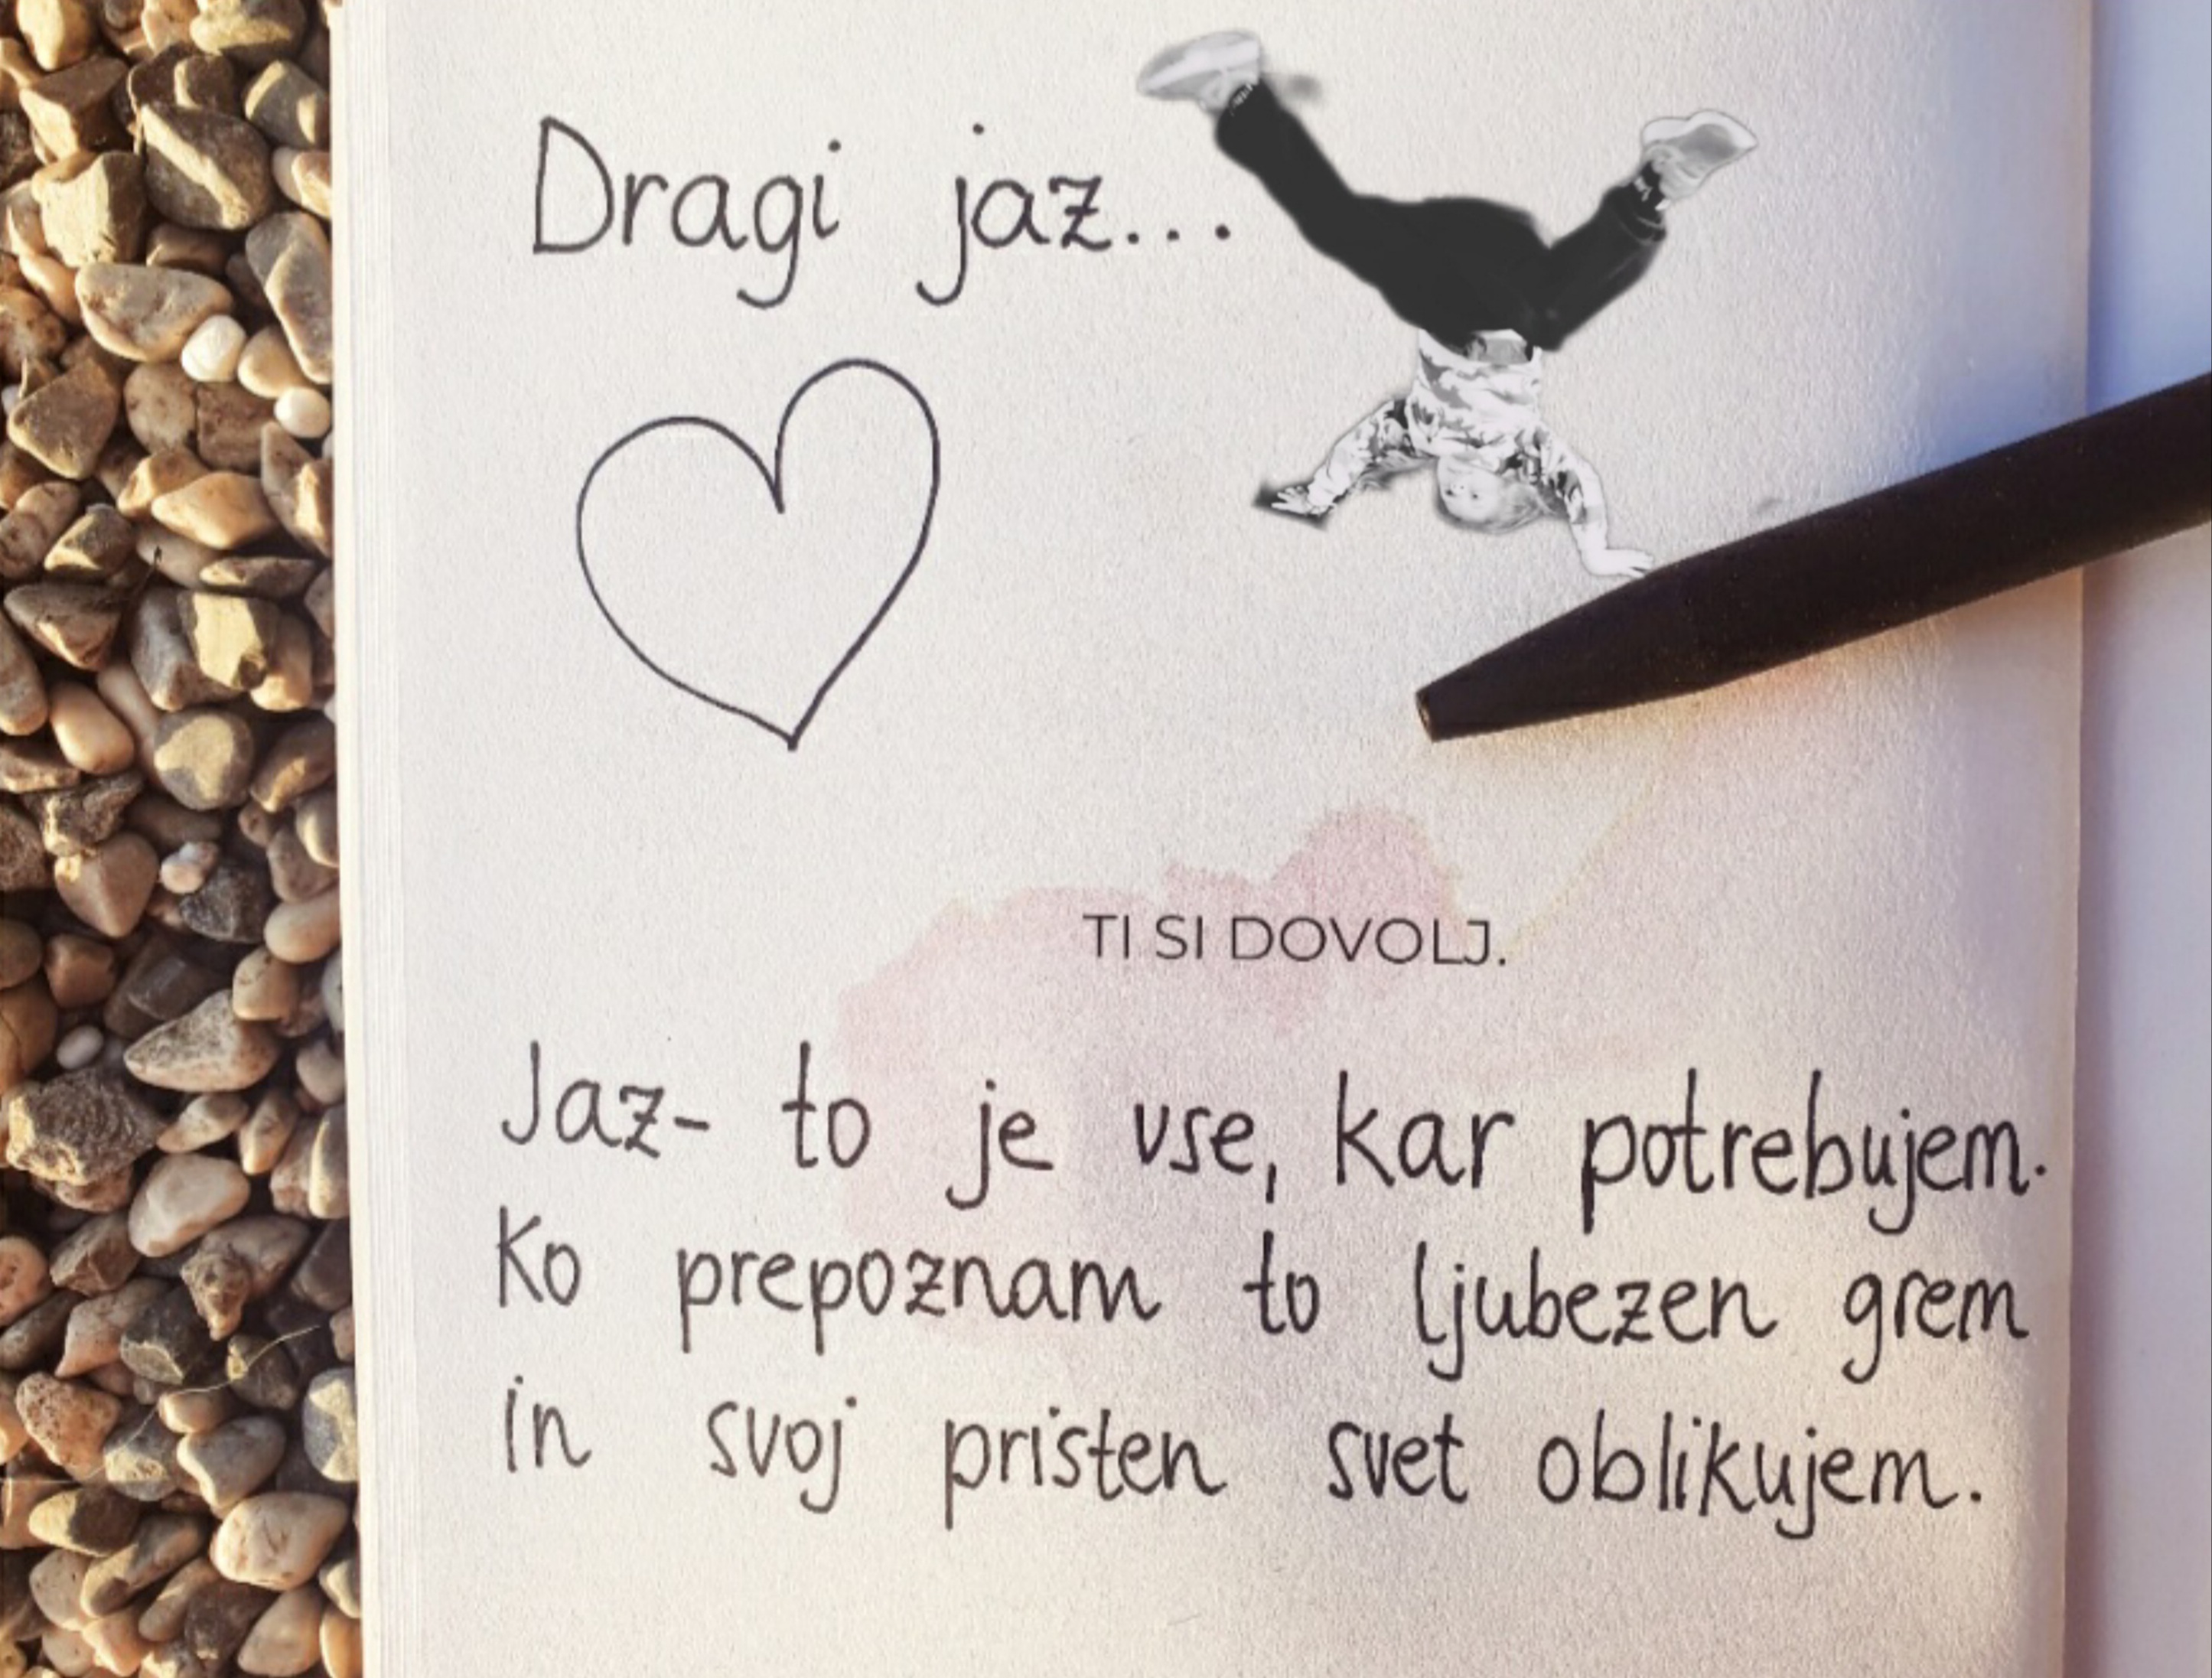 Dragi jaz...
TI SI DOVOLJ.
Jaz- to je vse, kar potrebujem.
Ko prepoznam to ljubezen grem
in svoj pristen svet oblikujem.